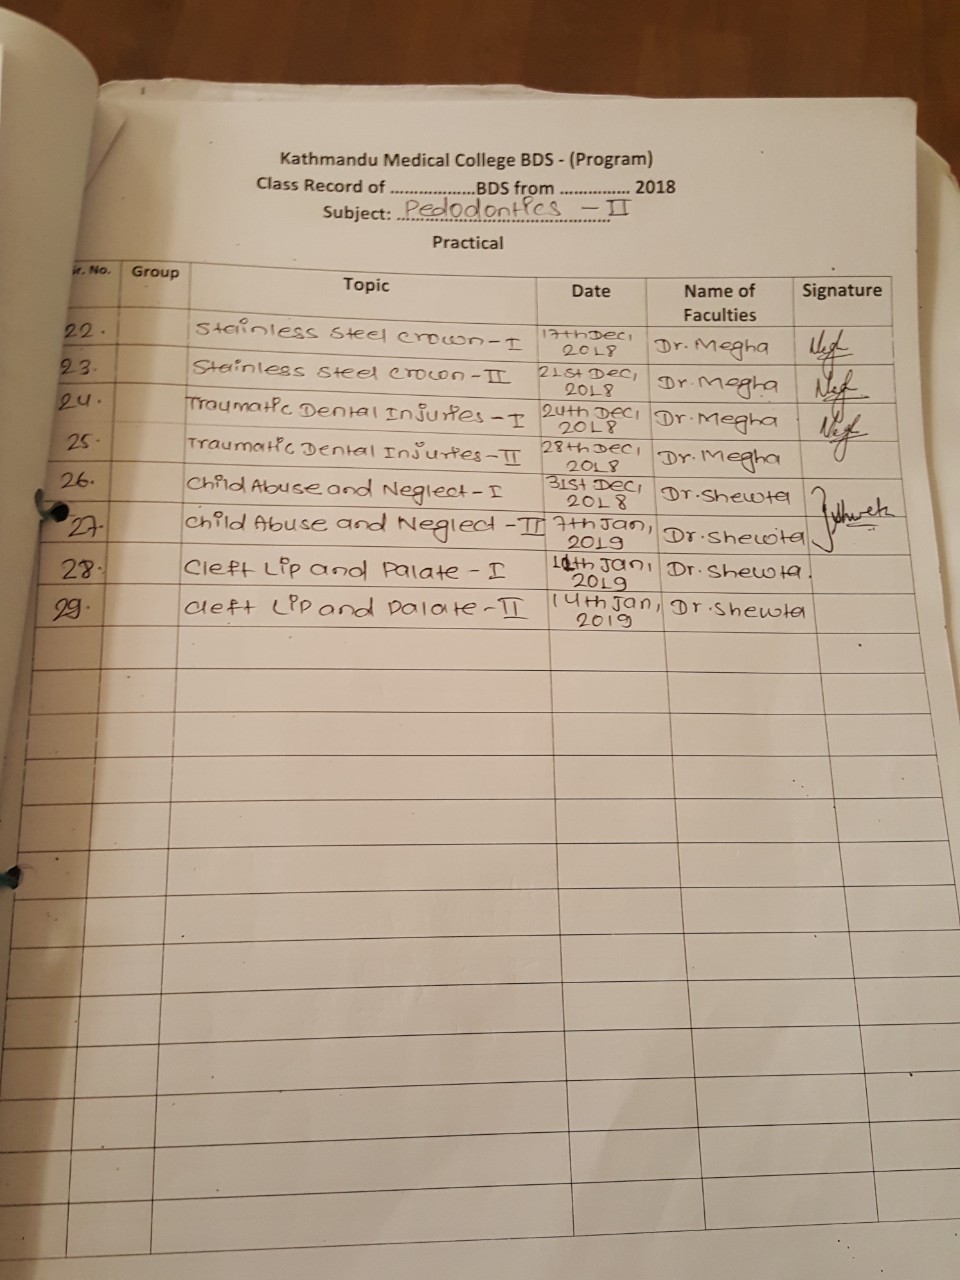 Kathmandu Medical College BDS - (Program)
Class Record of ..................BDS from ............... 2018
Subject: Pedodontics - II
Practical
Sr. No. Group Topic Date Name of Faculties Signature
22. Stainless steel crown - I 17th Dec, 2018 Dr. Megha
23. Stainless steel crown - II 21st Dec, 2018 Dr. Megha
24. Traumatic Dental Injuries - I 24th Dec, 2018 Dr. Megha
25. Traumatic Dental Injuries - II 28th Dec, 2018 Dr. Megha
26. Child Abuse and Neglect - I 31st Dec, 2018 Dr. Shewta
27. Child Abuse and Neglect - II 7th Jan, 2019 Dr. Shewta
28. Cleft Lip and Palate - I Jan, 2019 Dr. Shewta
29. Cleft Lip and Palate - II 14th Jan, 2019 Dr. Shewta